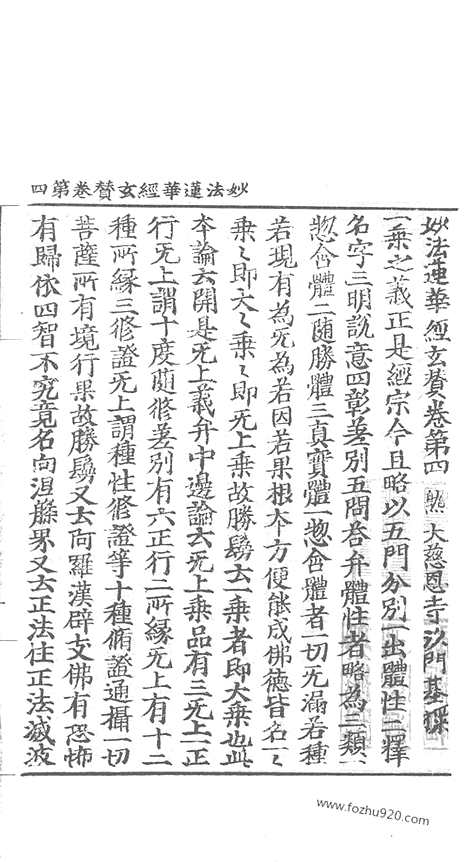 妙法蓮華經玄賛卷第四
妙法蓮華經玄賛卷第四 大慈恩寺沙門基撰
一乘之義正是經宗今且略以五門分別一出體性二釋
名字三明說意四彰差別五問荅弁體性者略為三類一
惣含體二随勝體三真實體一惣含體者一切无漏若種
若現有為无為若因若果根本方便能成佛德皆名一〻
乘〻即大〻乘〻即无上乘故勝鬘云一乘者即大乘也此
夲論云開是无上義弁中邊論云无上乘品有三无上一正
行无上謂十度随修差別有六正行二所緣无上有十二
種所緣三修證无上謂種性修證等十種脩證通攝一切
菩薩所有境行果故勝鬘又云阿羅漢辟支佛有恐怖
有歸依四智不究竟名向涅槃界又云正法住正法滅波
www.fozhu920.com